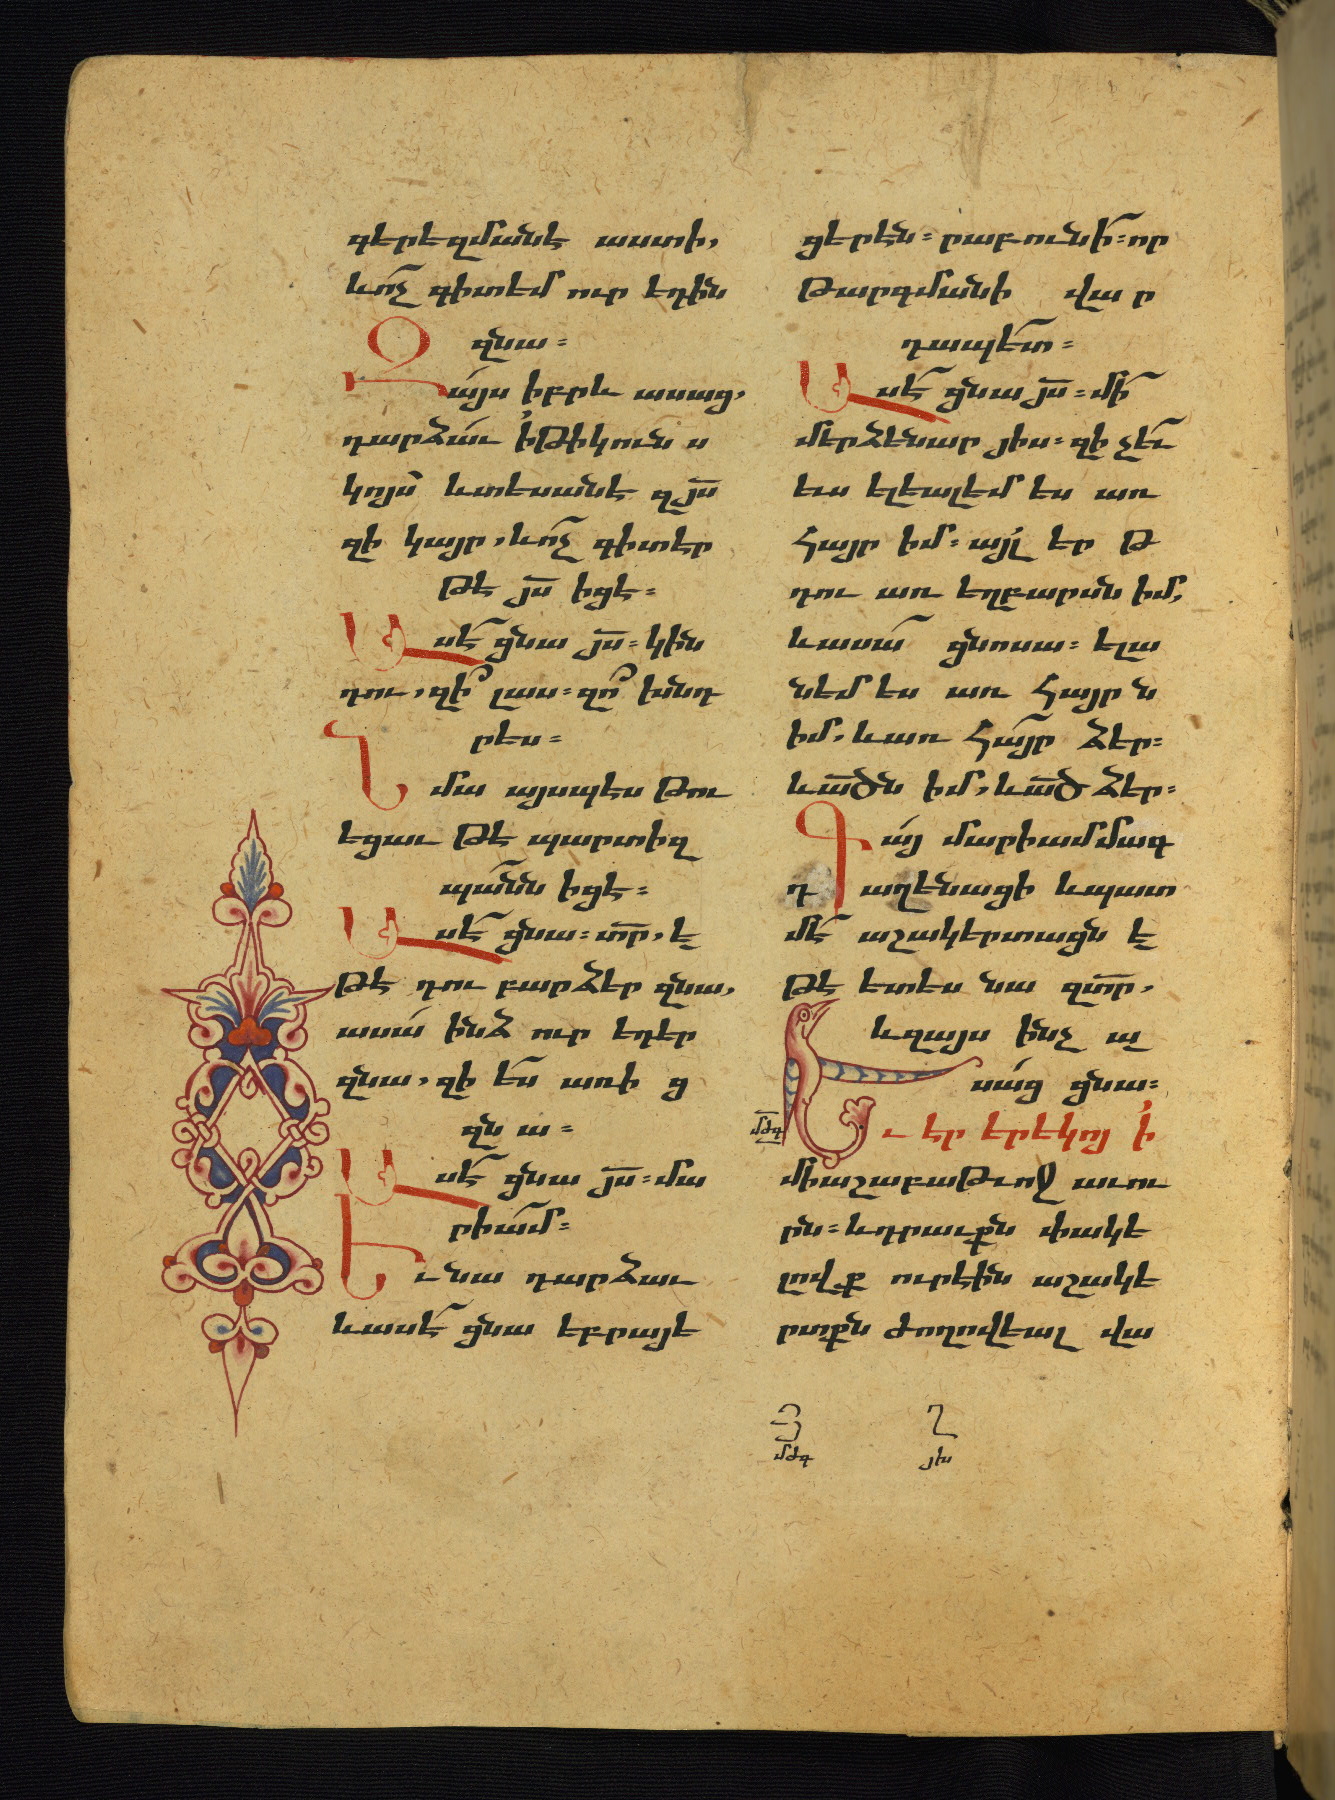 գերեզմանէ աստի,
և ո՛չ գիտեմ ուր եդին
զնա։
Զայս իբրև ասաց,
դարձաւ ի թիկունս
կոյս և տեսանէ զյս
զի կայր, և ո՛չ գիտէր
թէ յս իցէ։
Ասէ ցնա յս։ կին
դու, զի՞ լաս։ զո՞ խնդ
րես։
Նմա այսպէս թու
եցաւ թէ պարտիզ
պանն իցէ։
Ասէ ցնա։ տր, է
թէ դու բարձեր զնա,
ասա՛ ինձ ուր եդեր
զնա, զի ես առի ց
զն ա։
Ասէ ցնա յս։ մա
րիամ։
Եւ նա դարձաւ
և ասէ ցնա եբրայե
ցերէն։ րաբունի։ որ
թարգմանի վար
դապետ։
Ասէ ցնա յս։ մի՛
մերձենար յիս։ զի չեւ
ևս ելեալ եմ ես առ
հայր իմ։ այլ եր թ
դու առ եղբարսն իմ,
և ասա՛ ցնոսա։ ելա
նեմ ես առ հայր ն
իմ, և առ հայր ձեր։
և ած ն իմ, և ած ձեր։
Գայ մարիամ մագ
դ աղենացի և պատ
մէ աշակերտացն է
թէ ետես նա զտր,
և զայս ինչ ա
սաց ցնա։
մժգ
Եւ էր երեկոյ ի
միաշաբաթւոջ աւու
րն։ և դրաւքն փակե
լովք ուր էին աշակե
րտքն ժողովեալ վա
մժգ
յխ